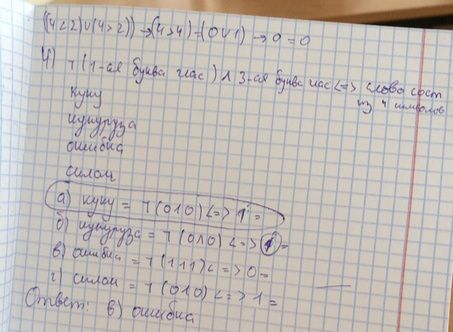 ((4<2)∪(4>2))→(4>4)=(0∪1)→0=0
4) ¬(1-ая буква глас)∧3-ая буква глас<=> слово сост
из 4 символов
куку
кукуруза
ошибка
силач
а) куку = ¬(0∧0)<=>1=
б) кукуруза = ¬(0∧0)<=>1=
в) ошибка = ¬(1∧1)<=>0=
г) =¬(0∧0)<=>1=
Ответ: в) ошибка